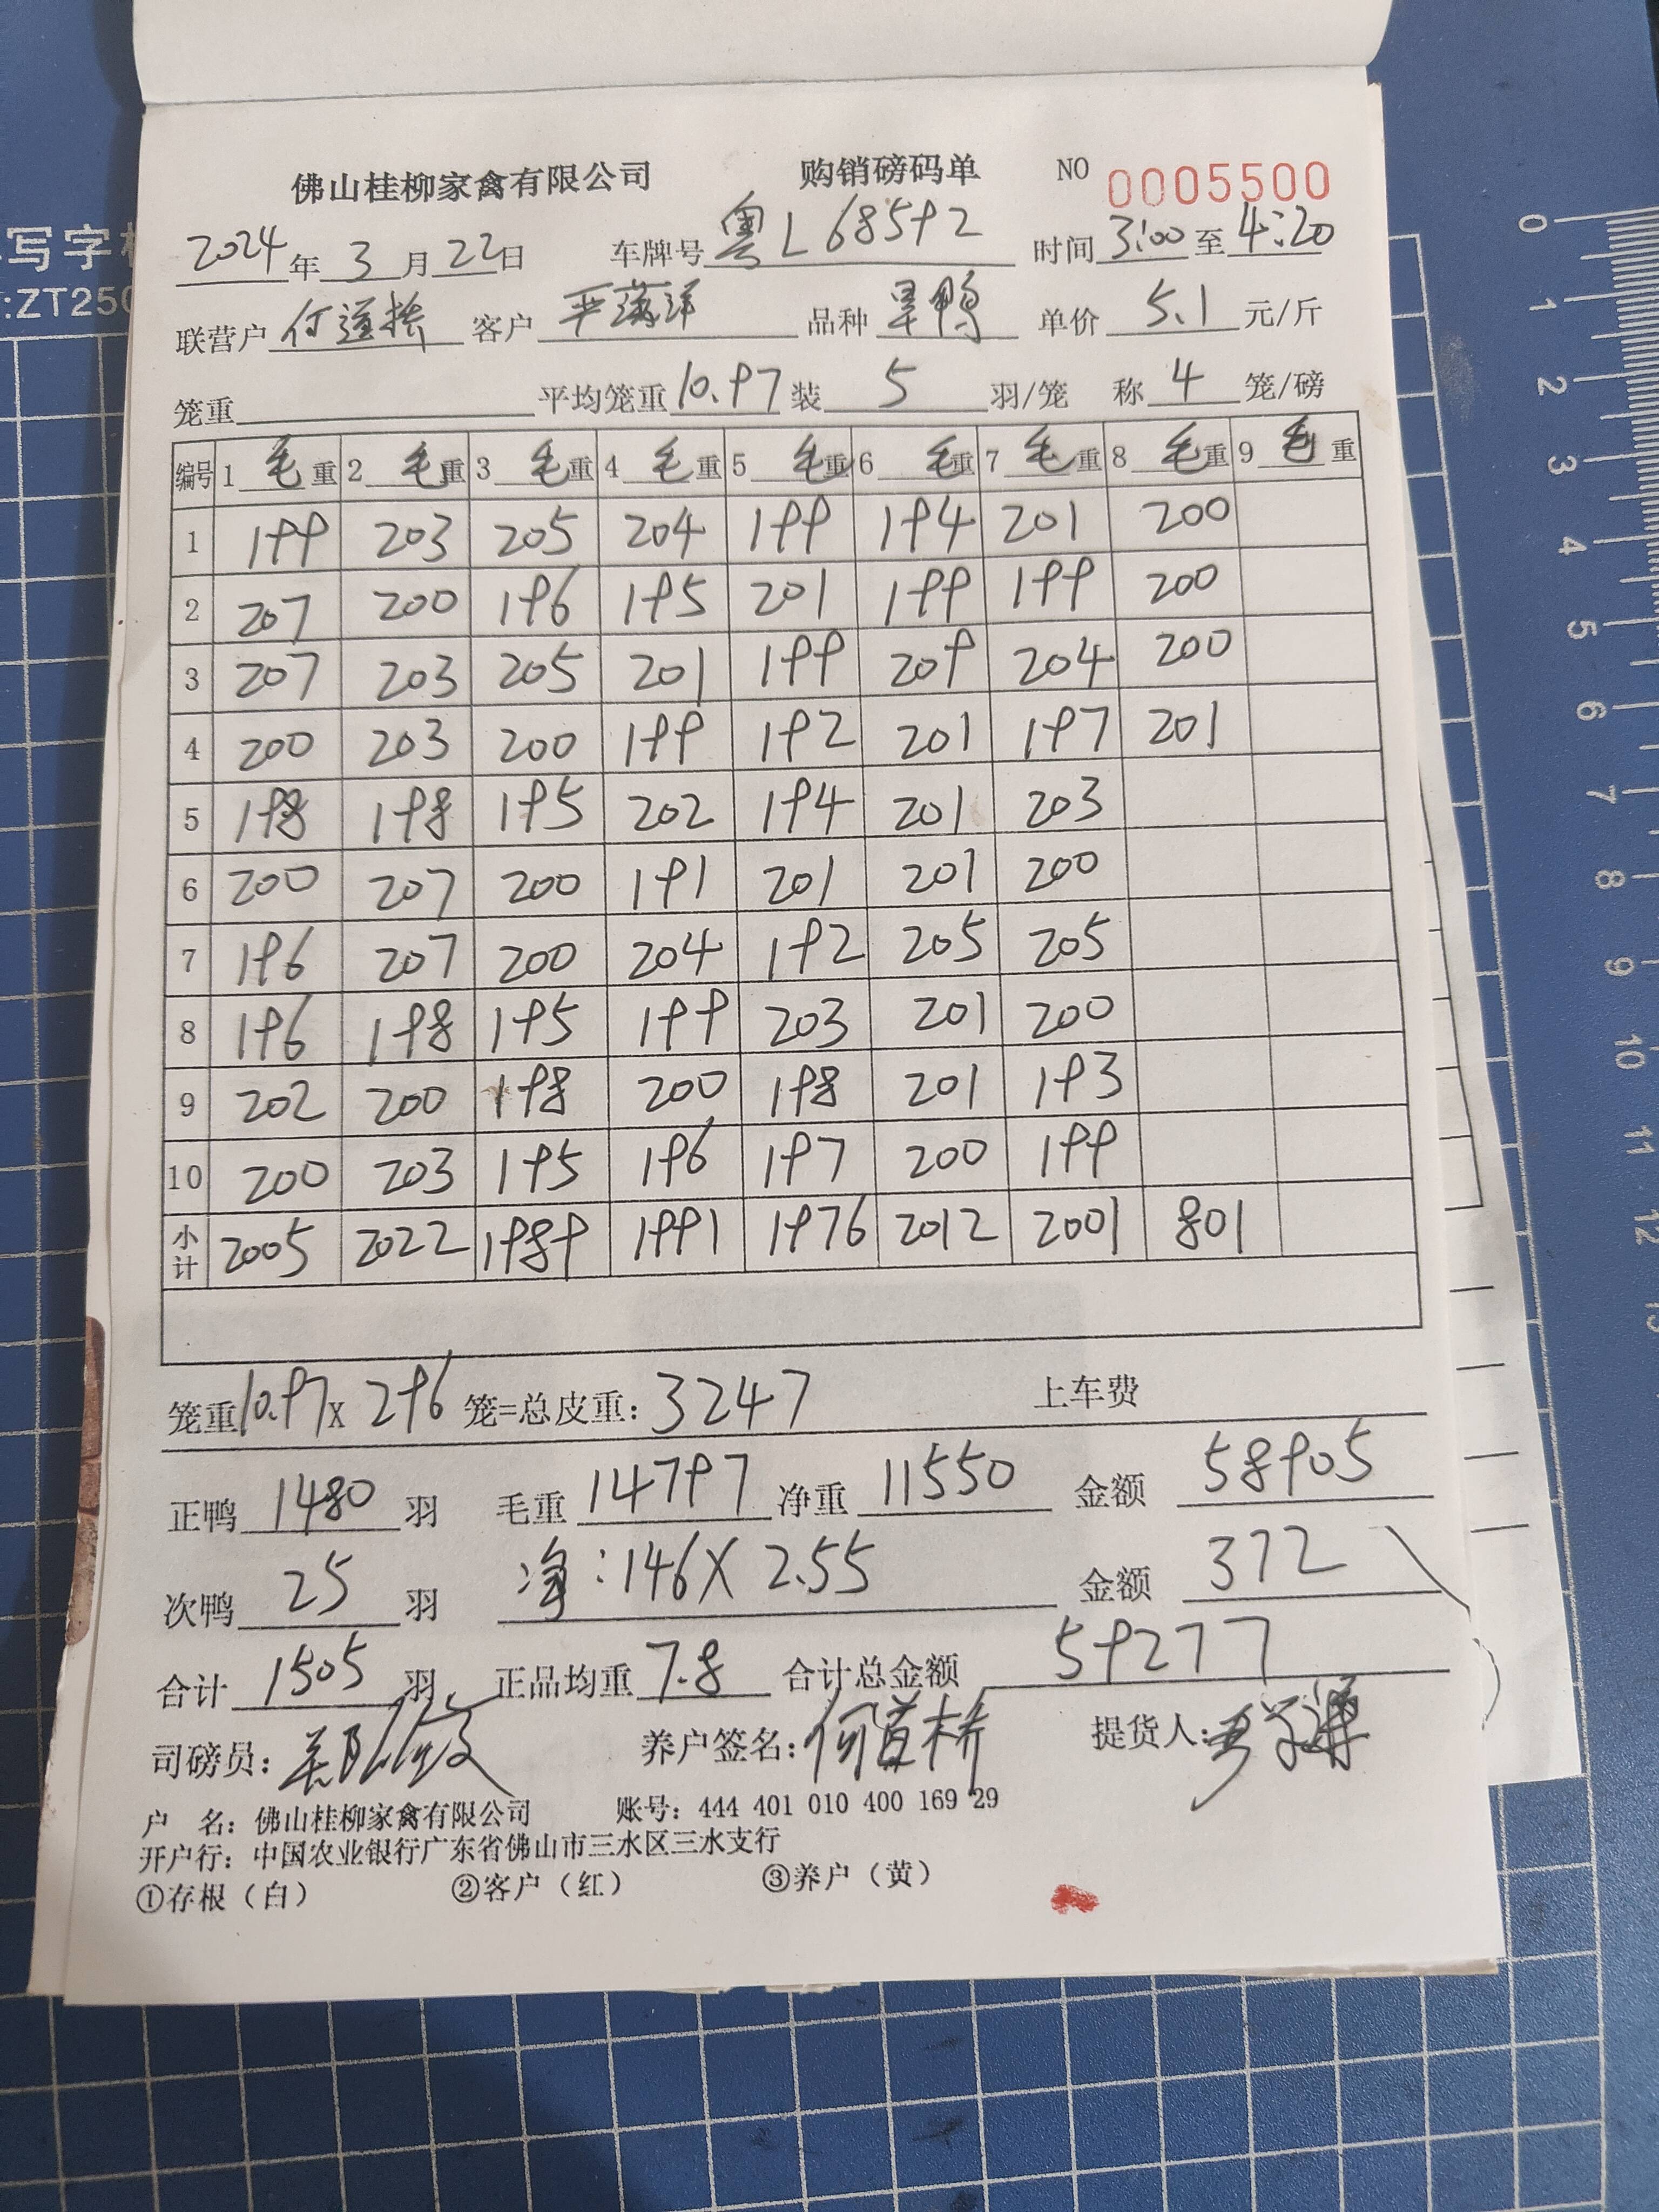 佛山桂柳家禽有限公司 购销磅码单 NO 0005500
2024年 3月 22日 车牌号 粤L68592 时间 3:00 至 4:20
联营户 何道 客户 品种 旱鸭 单价 5.1 元/斤
笼重 平均笼重 10.97 装 5 羽/笼 称 4 笼/磅
编号 1 毛重 2 毛重 3 毛重 4 毛重 5 毛重 6 毛重 7 毛重 8 毛重 9 毛重
1 199 203 205 204 199 194 201 200
2 207 200 196 195 201 199 199 200
3 207 203 205 201 199 209 204 200
4 200 203 200 199 192 201 197 201
5 198 198 195 202 194 201 203
6 200 207 200 191 201 201 200
7 196 207 200 204 192 205 205
8 196 198 195 199 203 201 200
9 202 200 198 200 198 201 193
10 200 203 195 196 197 200 199
小计 2005 2022 1989 1991 1976 2012 2001 801
笼重 10.97 x 296 笼=总皮重: 3247 上车费
正鸭 1480 羽 毛重 14797 净重 11550 金额 58905
次鸭 25 羽 净:146X 2.55 金额 372
合计 1505 羽 正品均重 7.8 合计总金额 59277
司磅员: 养户签名: 何道 提货人:
户 名: 佛山桂柳家禽有限公司 账号: 444 401 010 400 169 29
开户行: 中国农业银行广东省佛山市三水区三水支行
①存根(白) ②客户(红) ③养户(黄)
写字
:ZT250
0
1
2
3
4
5
6
7
8
9
10
11
12
13